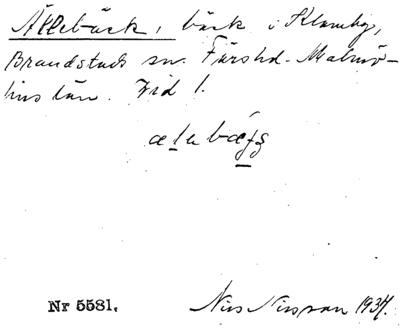 Ällebäck, bäck i Klamby,
Brandstads sn. Färshd. Malmö-
hus län. Fid 1.
Nr 5581. Nils Nilsson 1934.